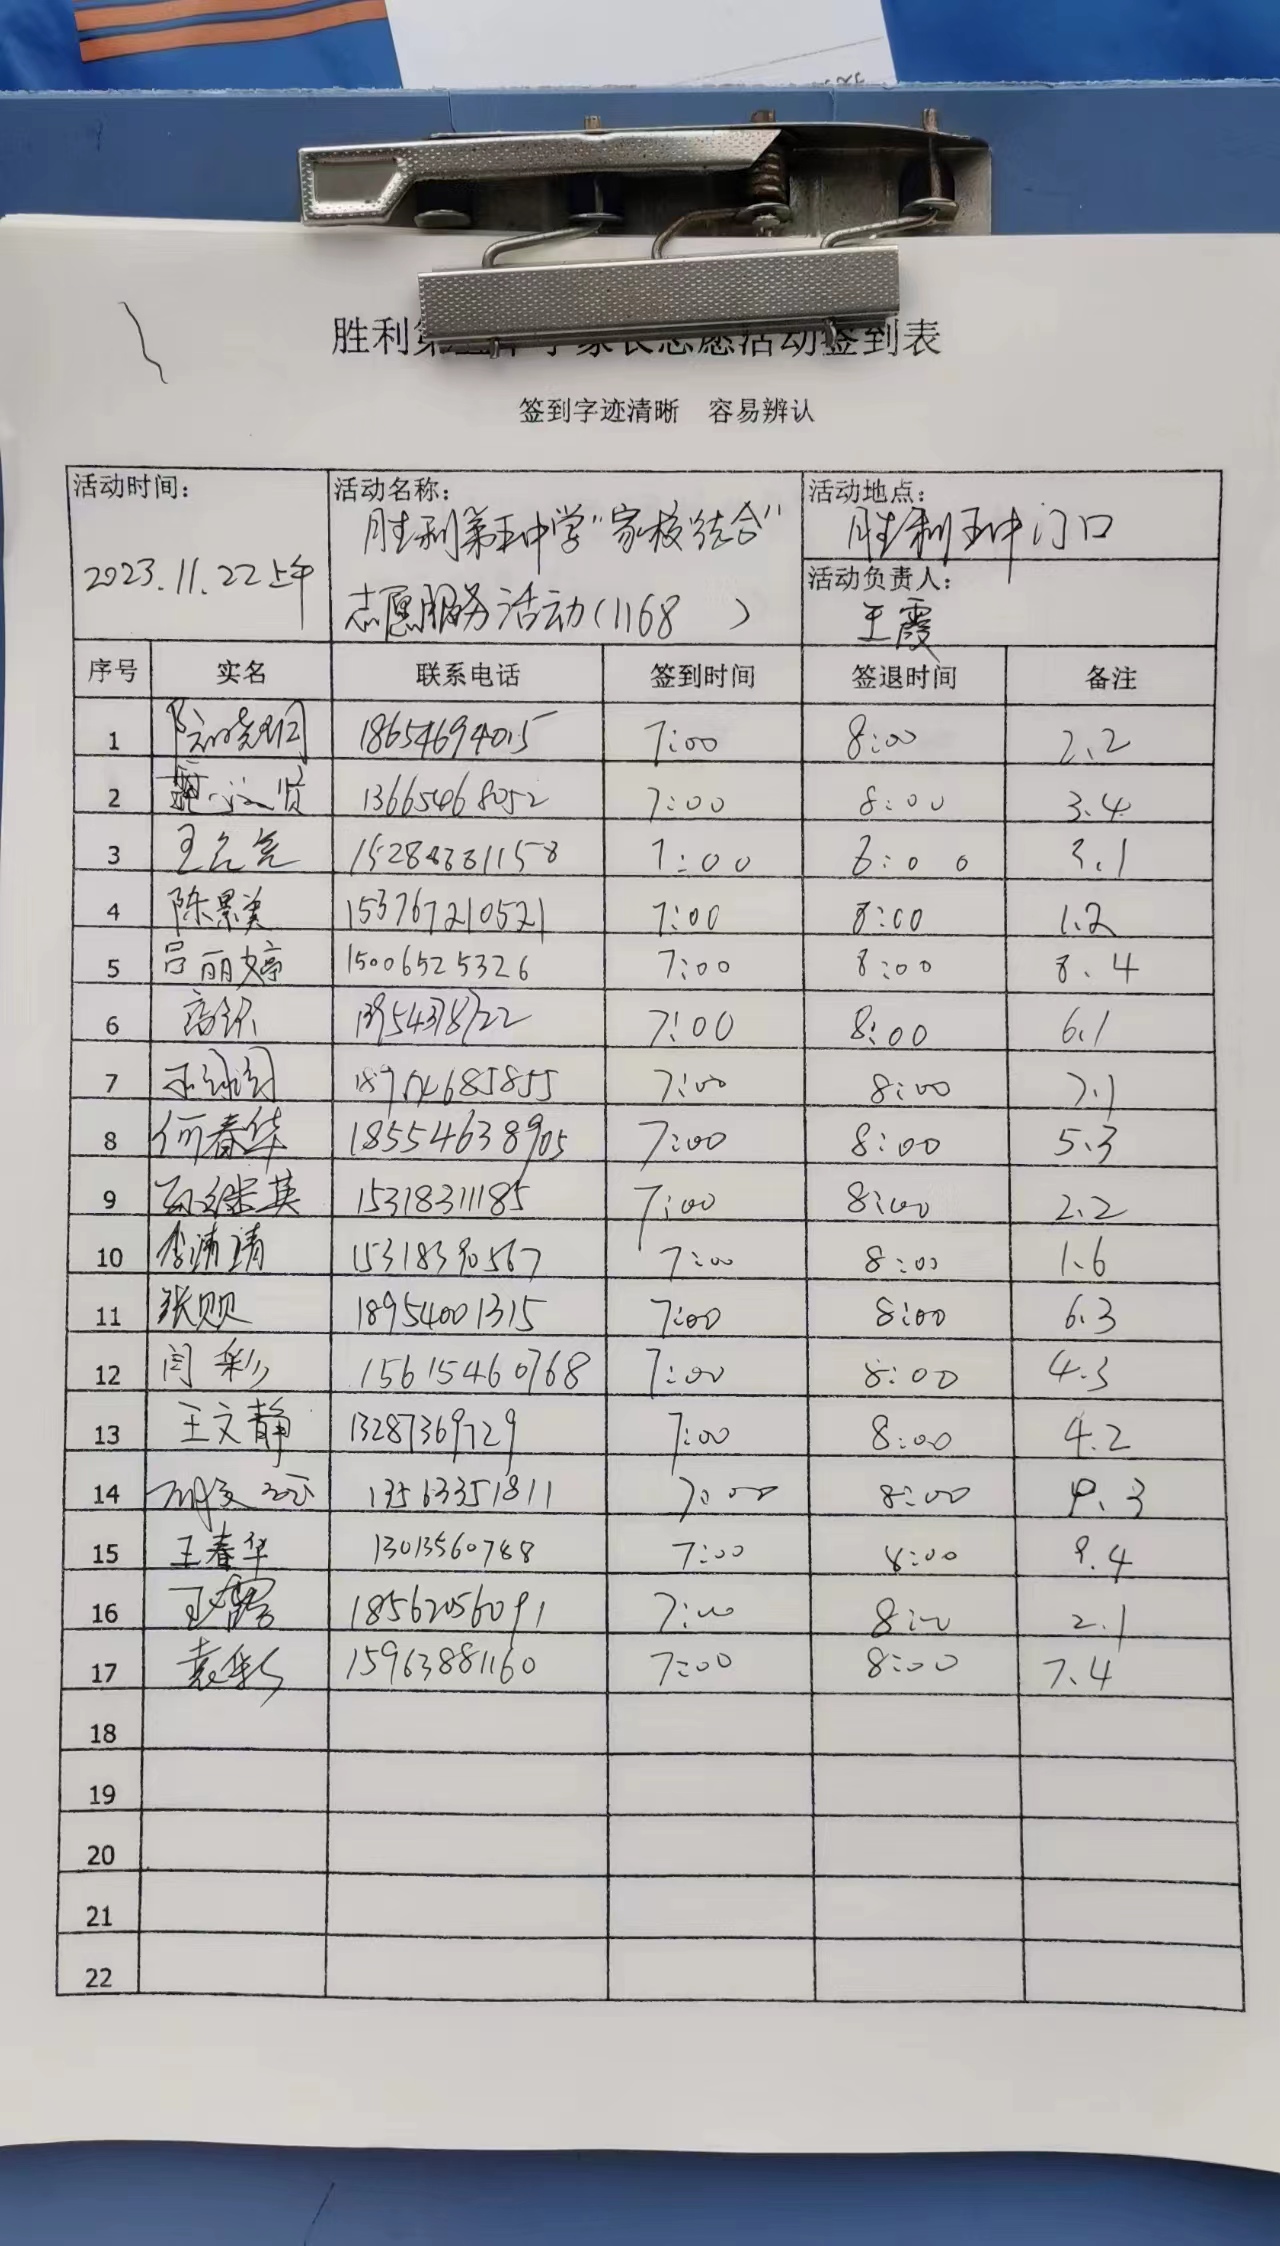 胜利第五中学家长志愿活动签到表
签到字迹清晰 容易辨认
活动时间: 2023.11.22上午
活动名称: 胜利第五中学"家校结合"
志愿服务活动(1168 )
活动地点: 胜利五中门口
活动负责人: 王霞
序号 实名 联系电话 签到时间 签退时间 备注
1 18654694015 7:00 8:00 2.2
2 13665468052 7:00 8:00 3.4
3 7:00 8:00 3.1
4 陈景美 153767210521 7:00 8:00 1.2
5 吕丽婷 15006525326 7:00 8:00 8.4
6 13954378722 7:00 8:00 6.1
7 7:00 8:00 7.1
8 何春华 18554638905 7:00 8:00 5.3
9 15318311185 7:00 8:00 2.2
10 李靖靖 15318390567 7:00 8:00 1.6
11 张贝贝 18954001315 7:00 8:00 6.3
12 闫彩 15615460768 7:00 8:00 4.3
13 王文静 13287369729 7:00 8:00 4.2
14 13563351811 7:00 8:00 9.3
15 王春华 13013560788 7:00 8:00 9.4
16 18562056091 7:00 8:00 2.1
17 袁彩 15963881160 7:00 8:00 7.4
18
19
20
21
22